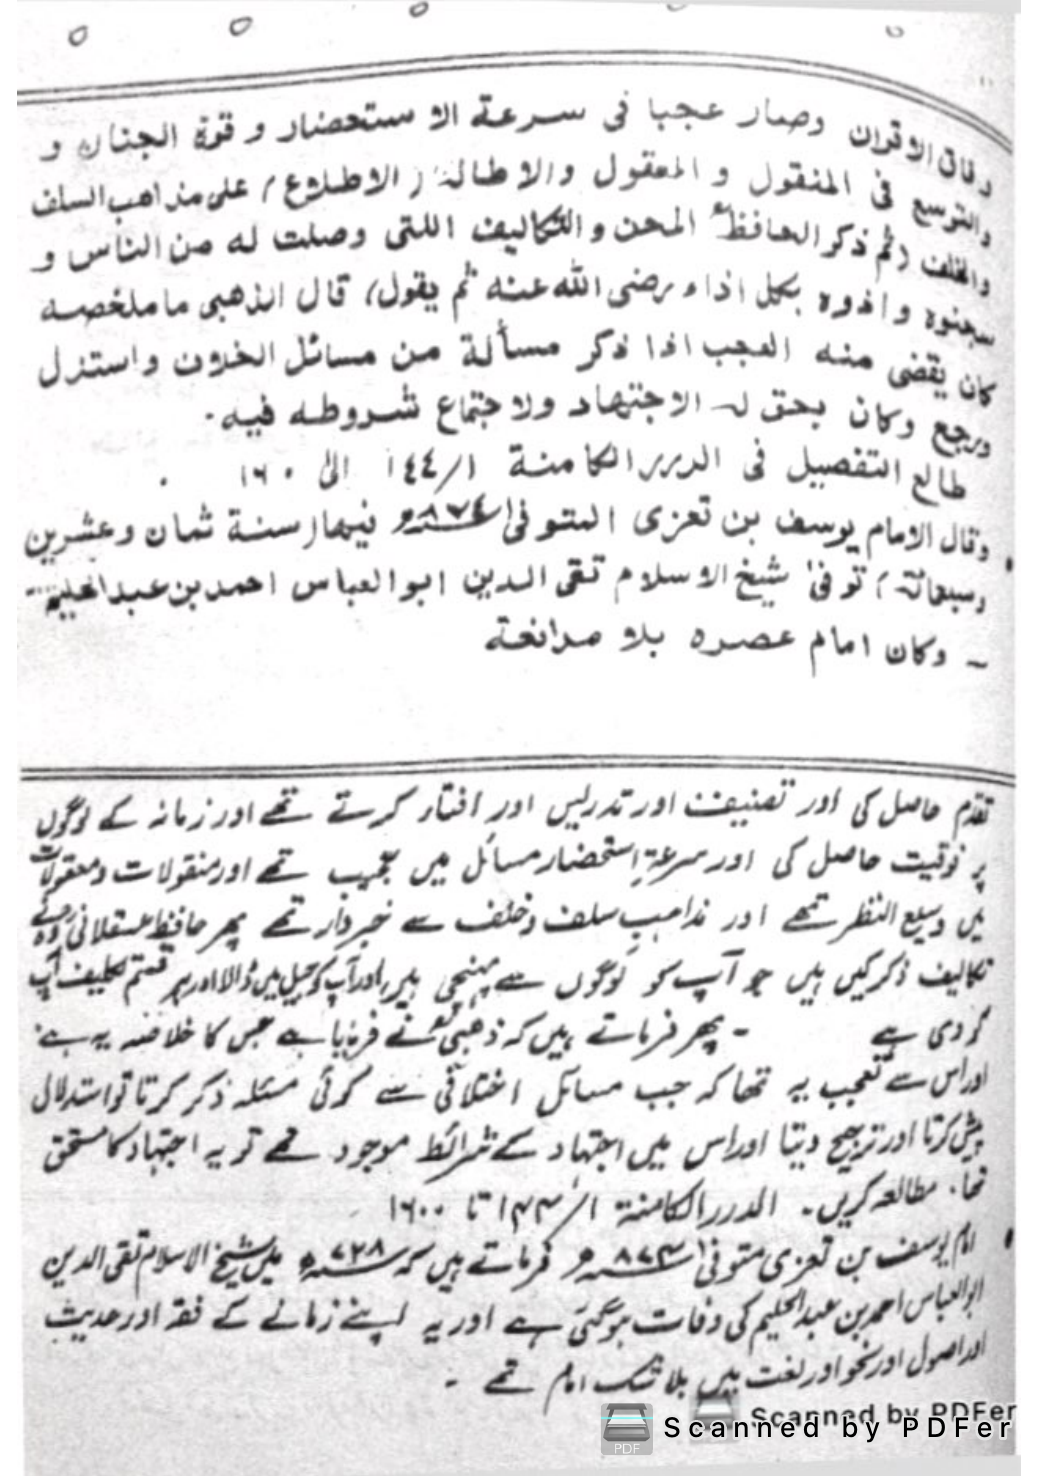 وفاق الاقران وصار عجبا فى سرعة الاستحضار و قوة الجنان و
والتوسع فى المنقول و المعقول والاطالة (الاطلاع) على مذاهب السلف
والخلف (ثم ذكر الحافظ المحن والتكاليف اللتى وصلت له من الناس و
سجنوه واذوه بكل اذاء رضى الله عنه ثم يقول) قال الذهبى ما ملخصه
كان يقضى منه العجب اذا ذكر مسألة من مسائل الخلاف واستدل
ورجع وكان يحق له الاجتهاد ولاجتماع شروطه فيه۔
طالع التفصيل فى الدرر الكامنة ١/١٤٤ الى ١٦٠
وقال الامام يوسف بن تعزى المتوفى ٨٧٤ فيها (سنة ثمان وعشرين
وسبعمائة) توفى شيخ الاسلام تقى الدين ابو العباس احمد بن عبد الحليم
ـ وكان امام عصره بلا مدافعة
تقدم حاصل کی اور تصنیف اور تدریس اور افتار کرتے تھے اور زمانہ کے لوگوں
پر فوقیت حاصل کی اور سرعۃِ استحضار مسائل میں عجیب تھے اور منقولات و معقولات
میں وسیع النظر تھے اور مذاہبِ سلف و خلف سے خبردار تھے پھر حافظ عسقلانی نے وہ
تکالیف ذکر کیں ہیں جو آپ کو لوگوں سے پہنچی ہیں، اور آپ کو جیل میں ڈالا اور ہر قسم تکلیف آپ
کو دی ہے ۔ پھر فرماتے ہیں کہ ذھبی نے فرمایا ہے جس کا خلاصہ یہ ہے:
اور اس سے تعجب یہ تھا کہ جب مسائل اختلافی سے کوئی مسئلہ ذکر کرتا تو استدلال
پیش کرتا اور ترجیح دیتا اور اس میں اجتہاد کے شرائط موجود تھے تو یہ اجتہاد کا مستحق
تھا۔ مطالعہ کریں۔ الدرر الکامنۃ ۱/۱۴۴ تا ۱۶۰۰
امام یوسف بن تعزی متوفی ۸۷۴ فرماتے ہیں کہ ۷۲۸ میں شیخ الاسلام تقی الدین
ابو العباس احمد بن عبد الحلیم کی وفات ہو گئی ہے اور یہ اپنے زمانے کے فقہ اور حدیث
اور اصول اور نحو اور لغت میں بلا شک امام تھے ۔
Scanned by PDFer
Scanned by PDFer
PDF